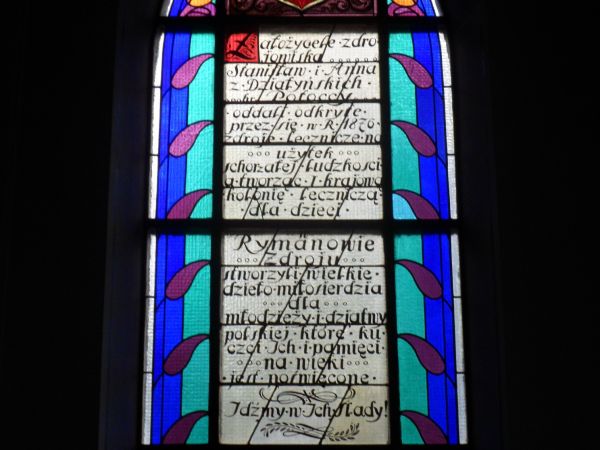 Założyciele · zdro-
jowiska
Stanisław · i · Anna
z · Działyńskich ·
Potoccy
· oddali odkryte ·
przez się · w · R · 1876 ·
zdroje · lecznicze · na
użytek
schorzałej · ludzkości
a · tworząc · I · krajową
kolonię · leczniczą ·
· dla · dzieci ·
w
Rymanowie
Zdroju
stworzyli · wielkie ·
dzieło · miłosierdzia
dla
młodzieży · i · dziatwy
polskiej · które · ku ·
czci · Ich · i · pamięci
na · wieki
· jest · poświęcone ·
Idźmy · w · Ich · ślady!